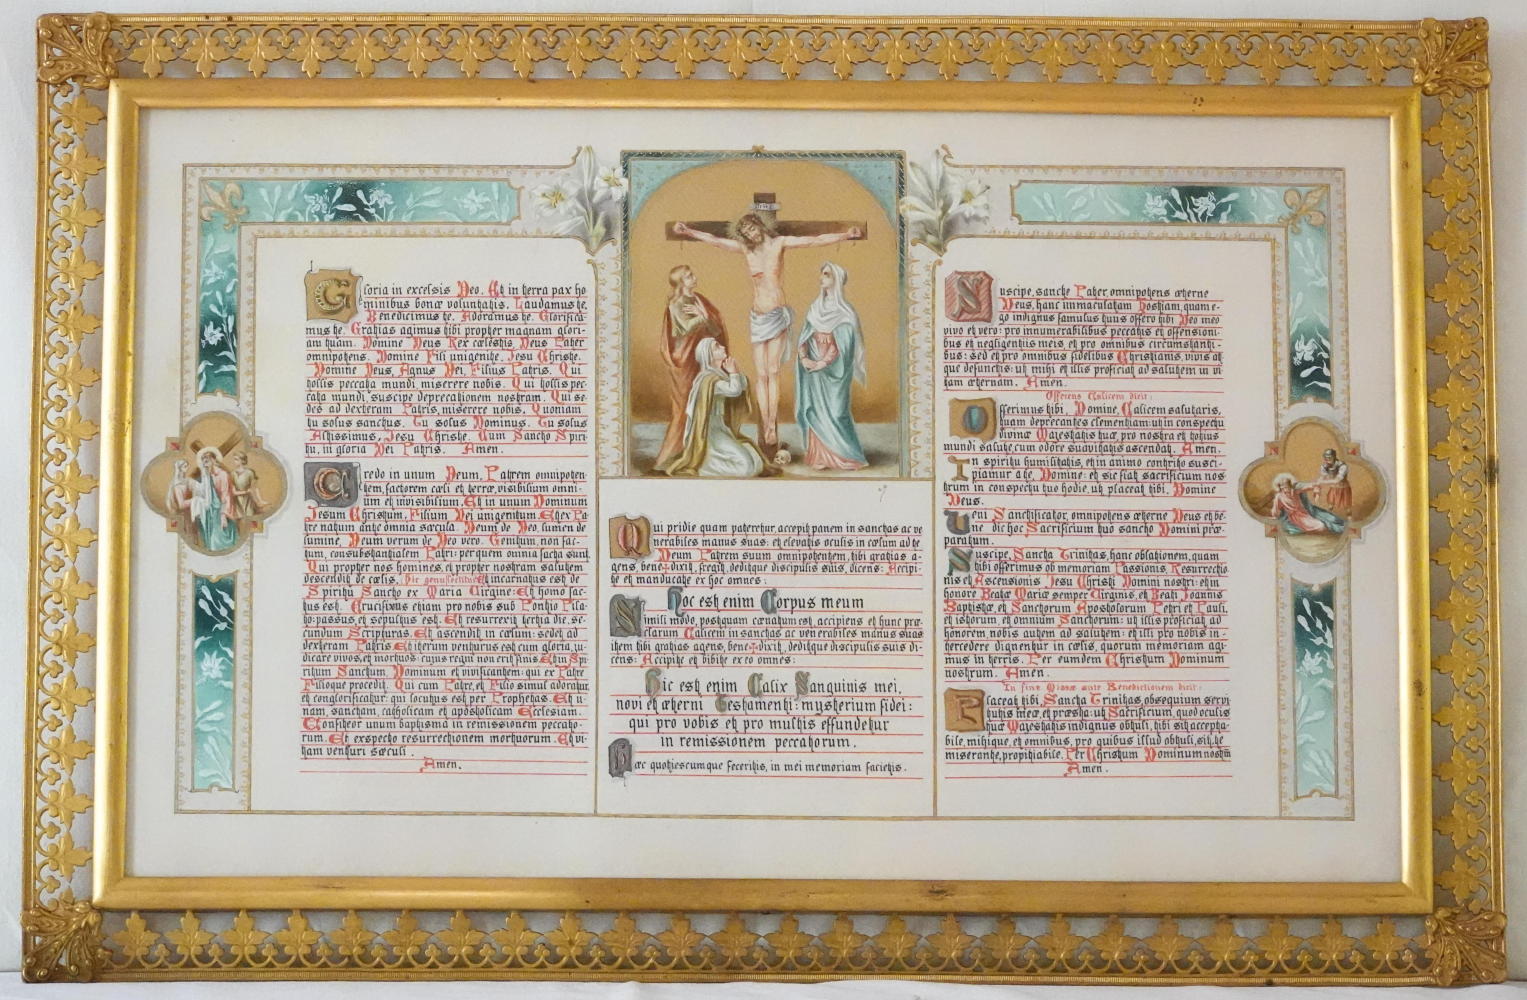 INRI
Gloria in excelsis Deo. Et in terra pax ho
minibus bonæ voluntatis. Laudamus te.
Benedicimus te. Adoramus te. Glorifica
mus te. Gratias agimus tibi propter magnam glori-
am tuam. Domine Deus Rex cœlestis, Deus Pater
omnipotens. Domine Fili unigenite, Jesu Christe.
Domine Deus, Agnus Dei, Filius Patris. Qui
tollis peccata mundi, miserere nobis. Qui tollis pec-
cata mundi, suscipe deprecationem nostram. Qui se-
des ad dexteram Patris, miserere nobis. Quoniam
tu solus sanctus. Tu solus Dominus. Tu solus
Altissimus, Jesu Christe. Cum Sancto Spiri-
tu, in gloria Dei Patris. Amen.
Credo in unum Deum, Patrem omnipoten-
tem, factorem cœli et terræ, visibilium omni-
um et invisibilium. Et in unum Dominum
Jesum Christum, Filium Dei unigenitum. Et ex Pa-
tre natum ante omnia sæcula. Deum de Deo, lumen de
lumine, Deum verum de Deo vero. Genitum, non fac-
tum, consubstantialem Patri: per quem omnia facta sunt.
Qui propter nos homines, et propter nostram salutem
descendit de cœlis. Hic genuflectitur Et incarnatus est de
Spiritu Sancto ex Maria Virgine: Et homo fac-
tus est. Crucifixus etiam pro nobis sub Pontio Pila-
to: passus et sepultus est. Et resurrexit tertia die, se-
cundum Scripturas. Et ascendit in cœlum: sedet ad
dexteram Patris. Et iterum venturus est cum gloria, ju-
dicare vivos, et mortuos: cujus regni non erit finis. Et in Spi-
ritum Sanctum, Dominum et vivificantem: qui ex Patre
Filioque procedit. Qui cum Patre, et Filio simul adoratur,
et conglorificatur: qui locutus est per Prophetas. Et u-
nam, sanctam, catholicam et apostolicam Ecclesiam.
Confiteor unum baptisma in remissionem peccato-
rum. Et exspecto resurrectionem mortuorum. Et vi-
tam venturi sæculi.
Amen.
Qui pridie quam pateretur, accepit panem in sanctas ac ve
nerabiles manus suas: et elevatis oculis in cœlum ad te
Deum Patrem suum omnipotentem, tibi gratias a-
gens, bene+dixit, fregit, deditque discipulis suis, dicens: Accipi-
te et manducate ex hoc omnes:
Hoc est enim Corpus meum
Simili modo, postquam cœnatum est, accipiens et hunc præ-
clarum Calicem in sanctas ac venerabiles manus suas
item tibi gratias agens, bene+dixit, deditque discipulis suis di-
cens: Accipite et bibite ex eo omnes:
Hic est enim Calix Sanguinis mei,
novi et æterni Testamenti: mysterium fidei:
qui pro vobis et pro multis effundetur
in remissionem peccatorum.
Hæc quotiescumque feceritis, in mei memoriam facietis.
Suscipe, sancte Pater, omnipotens æterne
Deus, hanc immaculatam hostiam, quam e-
go indignus famulus tuus offero tibi Deo meo
vivo et vero: pro innumerabilibus peccatis et offensioni-
bus et negligentiis meis, et pro omnibus circumstanti-
bus: sed et pro omnibus fidelibus Christianis, vivis at-
que defunctis: ut mihi et illis proficiat ad salutem in vi
tam æternam. Amen.
Offerens Calicem dicit:
Offerimus tibi, Domine, Calicem salutaris,
tuam deprecantes clementiam: ut in conspectu
divinæ Majestatis tuæ, pro nostra et totius
mundi salute, cum odore suavitatis ascendat. Amen.
In spiritu humilitatis, et in animo contrito susci-
piamur a te, Domine: et sic fiat sacrificium nos
trum in conspectu tuo hodie, ut placeat tibi, Domine
Deus.
Veni Sanctificator, omnipotens æterne Deus et be-
ne dic hoc Sacrificium tuo sancto Nomini præ-
paratum.
Suscipe, Sancta Trinitas, hanc oblationem, quam
tibi offerimus ob memoriam Passionis, Resurrectio
nis et Ascensionis Jesu Christi Domini nostri: et in
honore Beatæ Mariæ semper Virginis, et Beati Joannis
Baptistæ, et Sanctorum Apostolorum Petri et Pauli,
et istorum, et omnium Sanctorum: ut illis proficiat ad
honorem nobis autem ad salutem: et illi pro nobis in-
tercedere dignentur in cœlis, quorum memoriam agi-
mus in terris. Per eumdem Christum Dominum
nostrum. Amen.
In fine Missæ ante Benedictionem dicit:
Placeat tibi, Sancta Trinitas, obsequium servi
tutis meæ, et præsta: ut Sacrificium, quod oculis
tuæ Majestatis indignus obtuli, tibi sit accepta-
bile, mihique, et omnibus, pro quibus illud obtuli, sit, te
miserante, propitiabile. Per Christum Dominum nostrum
Amen.